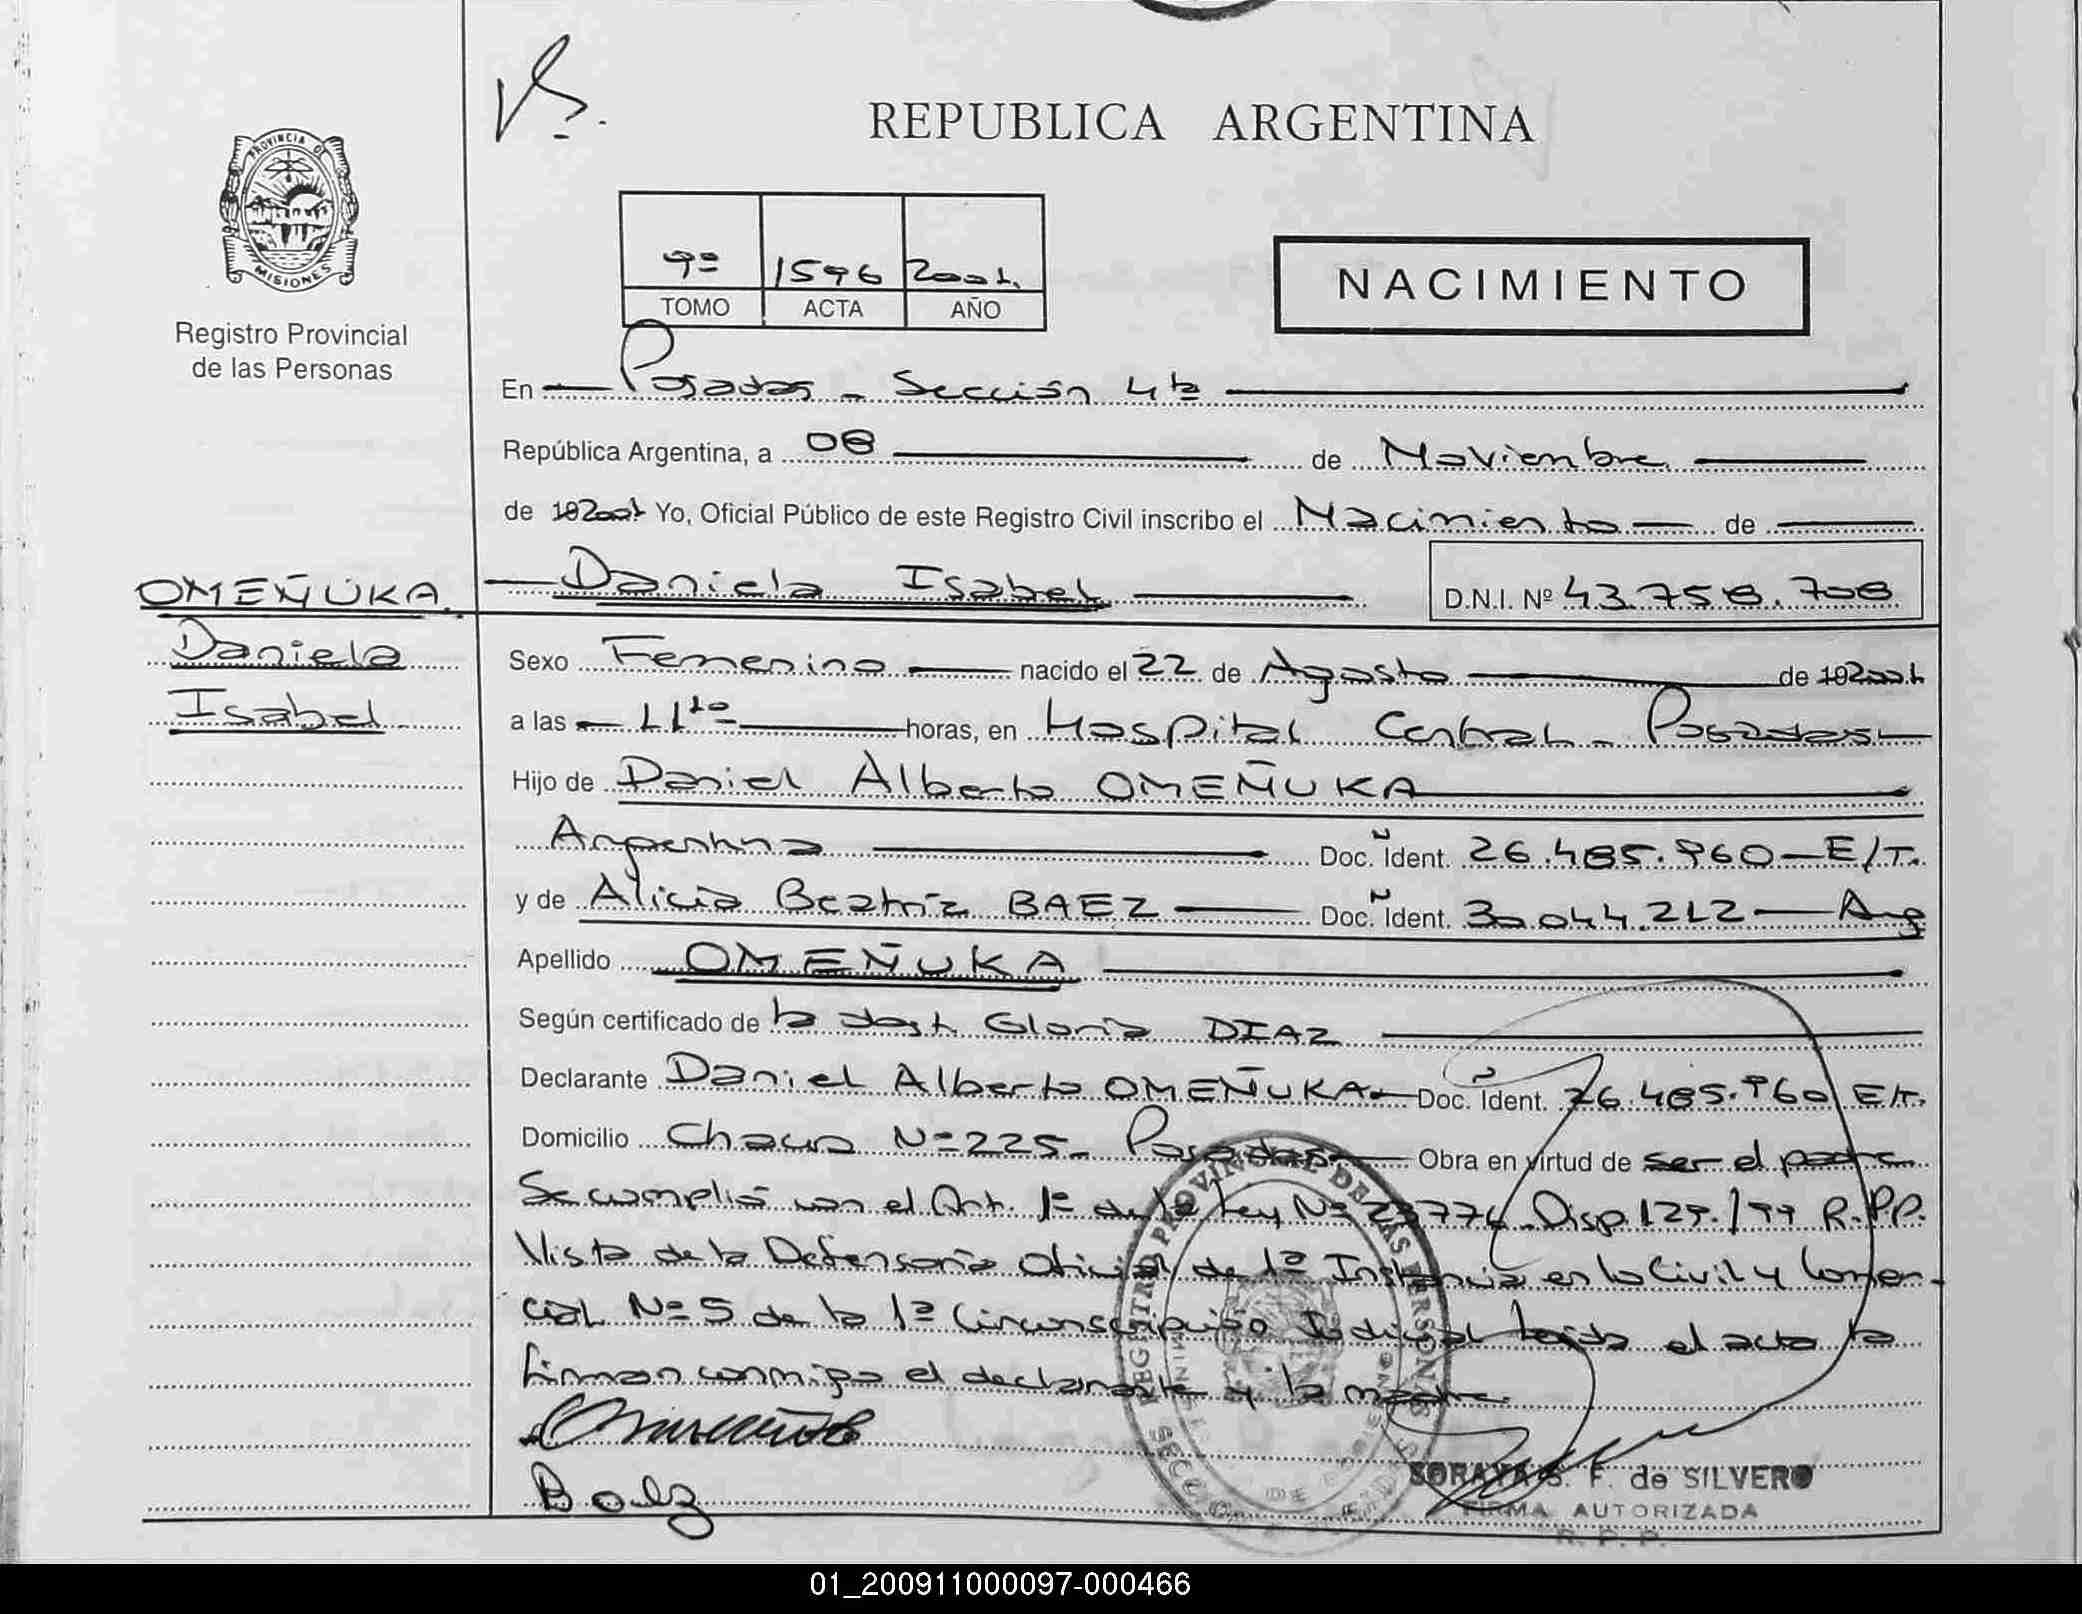 REPUBLICA ARGENTINA
PROVINCIA DE MISIONES
Registro Provincial
de las Personas
9º 1596 2001.
TOMO ACTA AÑO
NACIMIENTO
En Posadas - Sección 4ta
República Argentina, a 08 de Noviembre
de 192001 Yo, Oficial Público de este Registro Civil inscribo el Nacimiento de
OMEÑUKA Daniela Isabel D.N.I. Nº 43.758.708
Daniela
Isabel
Sexo Femenino nacido el 22 de Agosto de 192001
a las 11 10 horas, en Hospital Central - Posadas
Hijo de Daniel Alberto OMEÑUKA
Argentina Doc. Ident. 26.485.960 - E/T.
y de Alicia Beatriz BAEZ Doc. Ident. 30.044.212 - Arg
Apellido OMEÑUKA
Según certificado de la obst. Gloria DIAZ
Declarante Daniel Alberto OMEÑUKA Doc. Ident. 26.485.960 E/T.
Domicilio Chaco Nº 225 - Posadas Obra en virtud de ser el padre
Se cumplió con el Art. 1º de la Ley Nº Disp. 129/99 R.P.P.
Vista de la Defensoría Oficial de 1º Instancia en lo Civil y Comer-
cial Nº 5 de la 1º Circunscripción Judicial leída el acta la
firman conmigo el declarante y la madre.
Baez
SORAYA S. F. de SILVERO
FIRMA AUTORIZADA
R. P. P.
REGISTRO PROVINCIAL DE LAS PERSONAS
01_200911000097-000466